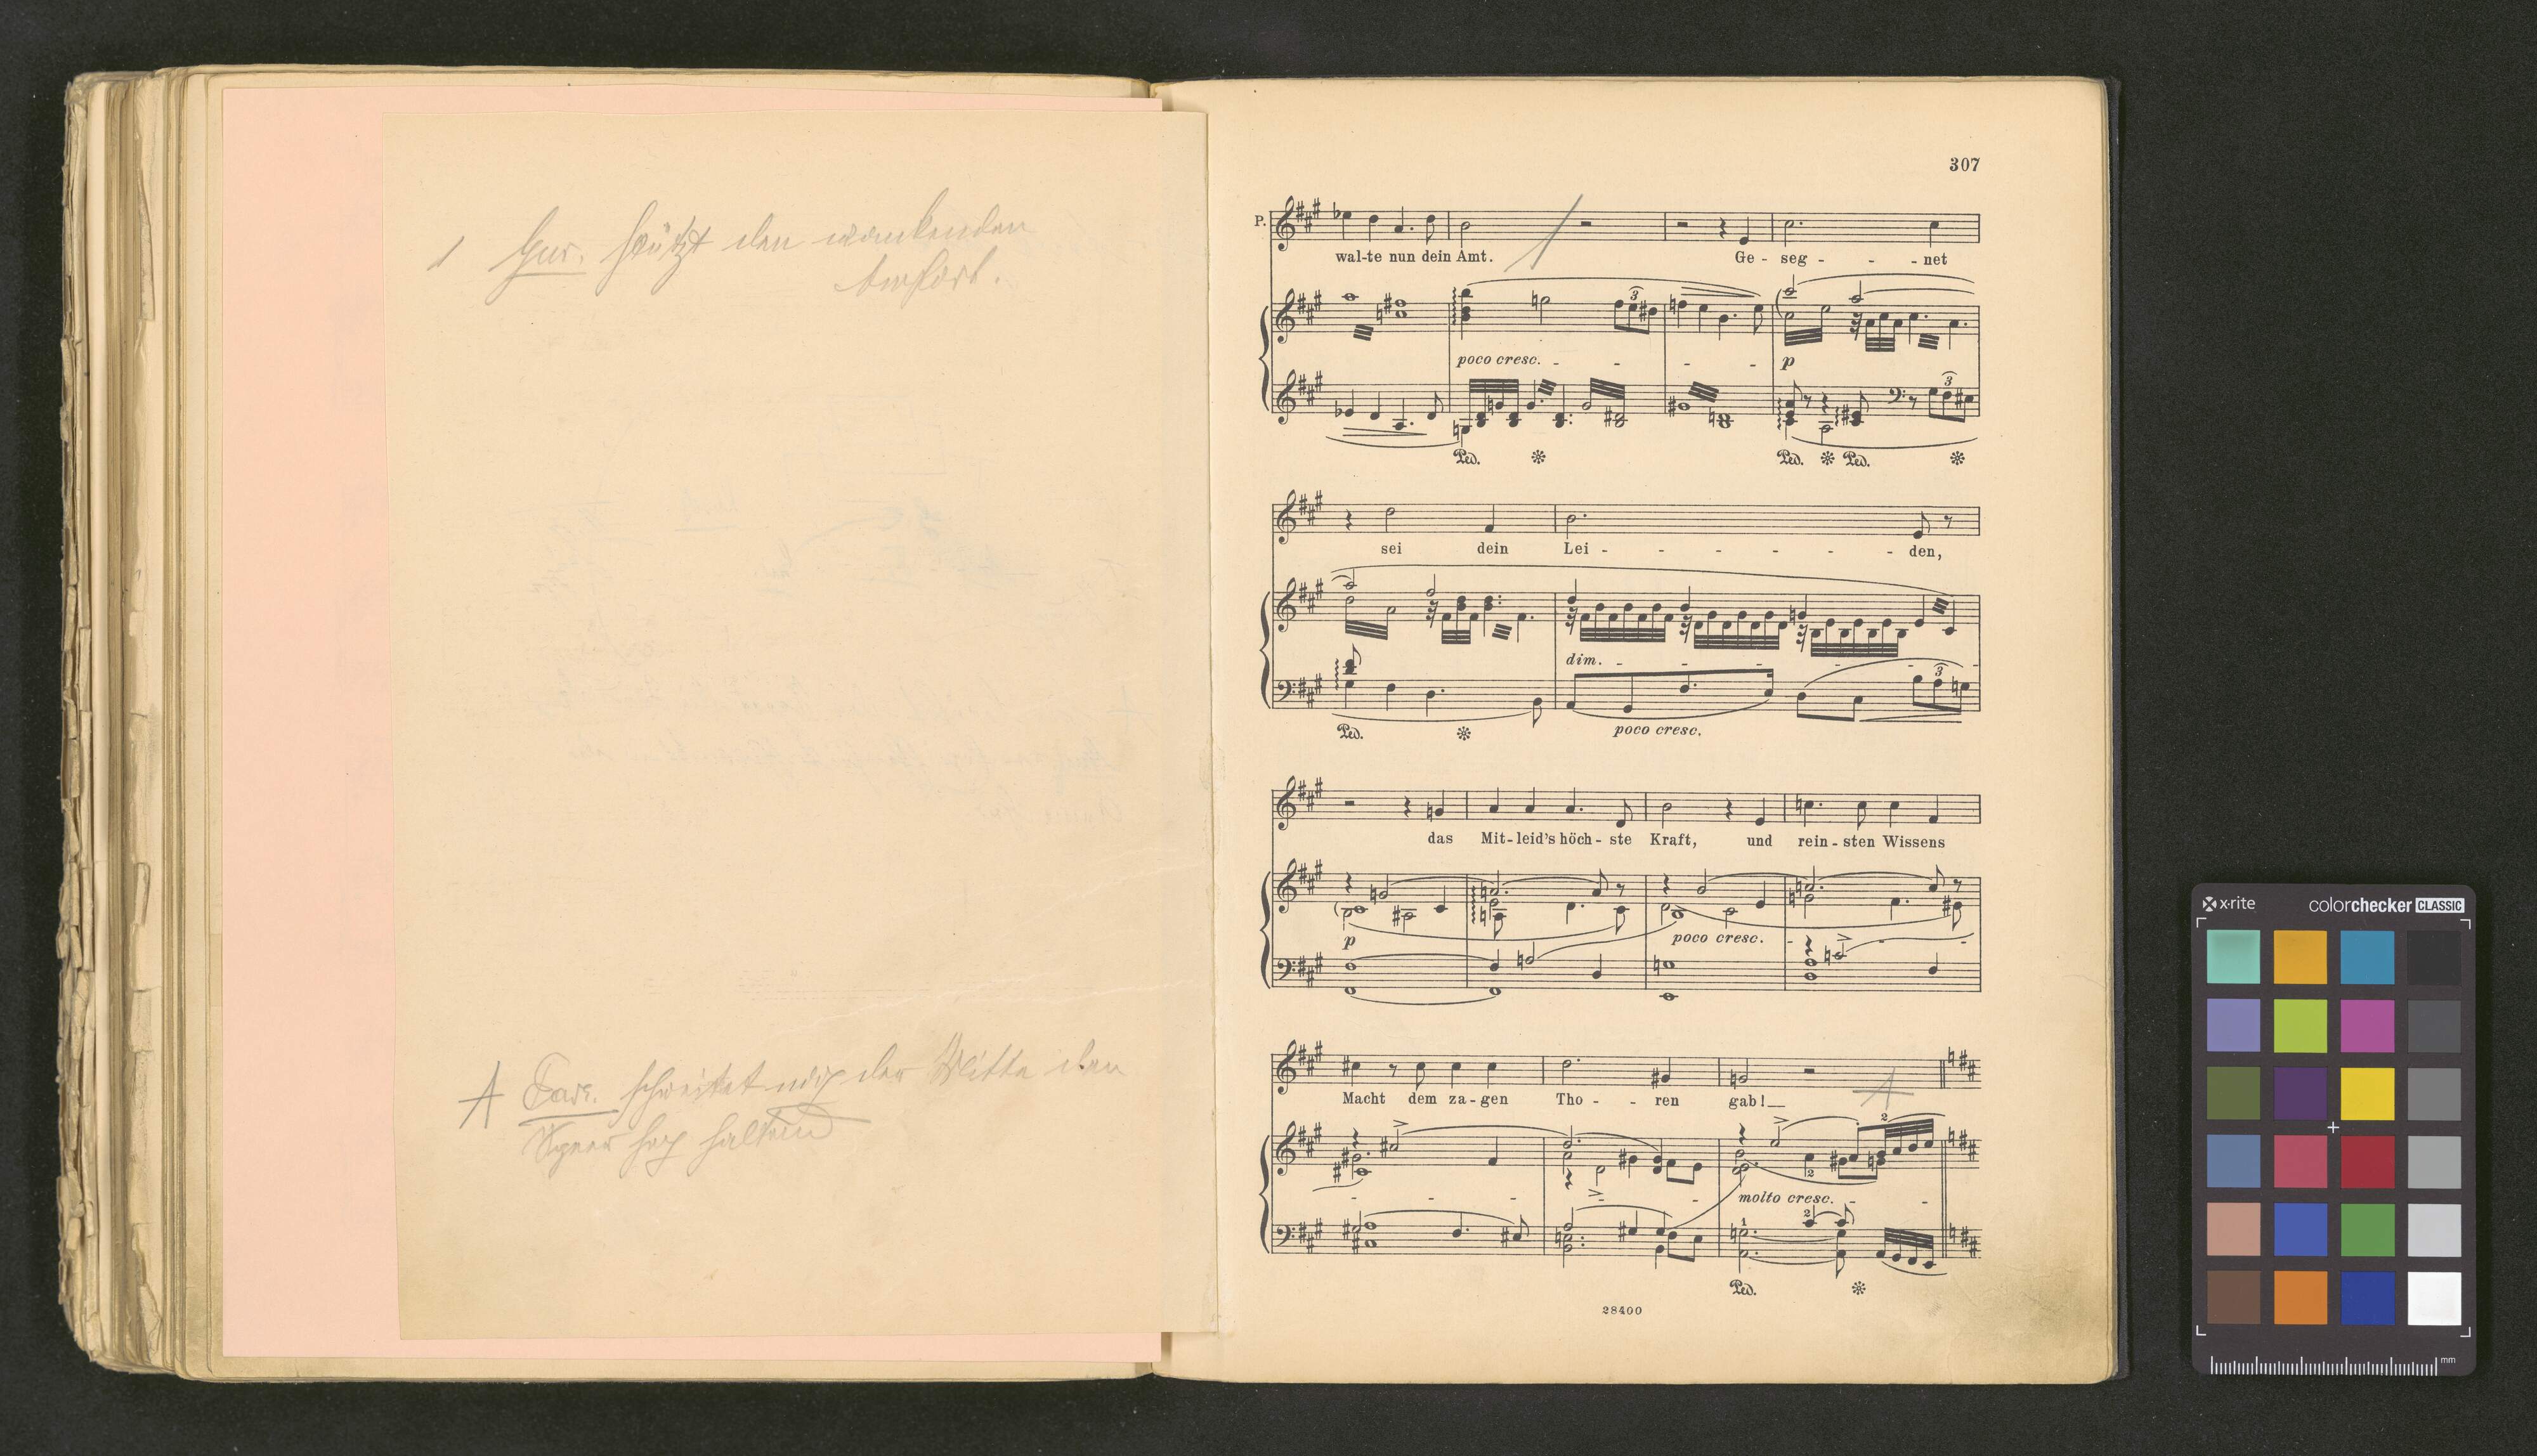 1 Gur. stützt den wankenden
Amfort.
A Pars. schreitet nach der Mitte den
Speer hoch haltend
307
P.
wal-te nun dein Amt. Ge - seg - - - net
3
poco cresc. - - - - p
3
Ped. * Ped. * Ped. *
sei dein Lei - - - - - - - den,
dim. - - - - - - -
3
Ped. * poco cresc.
das Mit-leid's höch - ste Kraft, und rein - sten Wissens
p poco cresc. - - -
Macht dem za - gen Tho - - ren gab! A
2
2
- - - - - molto cresc. - -
1 2
Ped. *
28400
x-rite colorchecker CLASSIC
mm